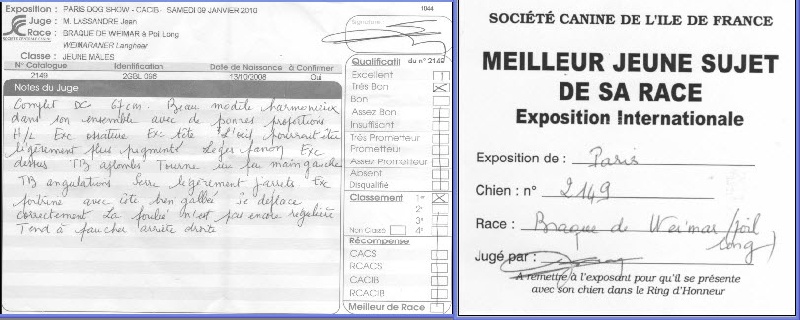 Exposition : PARIS DOG SHOW - CACIB - SAMEDI 09 JANVIER 2010
1044
Juge : M. LASSANDRE Jean
Signature
Race : BRAQUE DE WEIMAR à Poil Long
WEIMARANER Langhaar
Classe : JEUNE MÂLES
N° Catalogue Identification Date de Naissance à Confirmer
2149 2GBL 096 13/10/2008 Oui
Notes du Juge
Complet DC 67 cm. Beau modèle harmonieux
dans son ensemble avec de bonnes proportions
H/L Exc ossature Exc tête L'œil pourrait être
légèrement plus pigmenté Léger fanon Exc
dessus TB aplombs Tourne un peu main gauche
TB angulations Serre légèrement jarrets Exc
poitrine avec côte bien galbée se déplace
correctement La foulée n'est pas encore régulière
Tend à faucher arrière droite
Qualificatif du n° 2149
Excellent
Très Bon
Bon
Assez Bon
Insuffisant
Très Prometteur
Prometteur
Assez Prometteur
Absent
Disqualifié
Classement 1er
2e
3e
Non Classé 4e
Récompense
CACS
RCACS
CACIB
RCACIB
Meilleur de Race
SOCIÉTÉ CANINE DE L'ILE DE FRANCE
MEILLEUR JEUNE SUJET
DE SA RACE
Exposition Internationale
Exposition de : Paris
Chien : n° 2149
Race : Braque de Weimar (poil
long)
Jugé par :
A remettre à l'exposant pour qu'il se présente
avec son chien dans le Ring d'Honneur